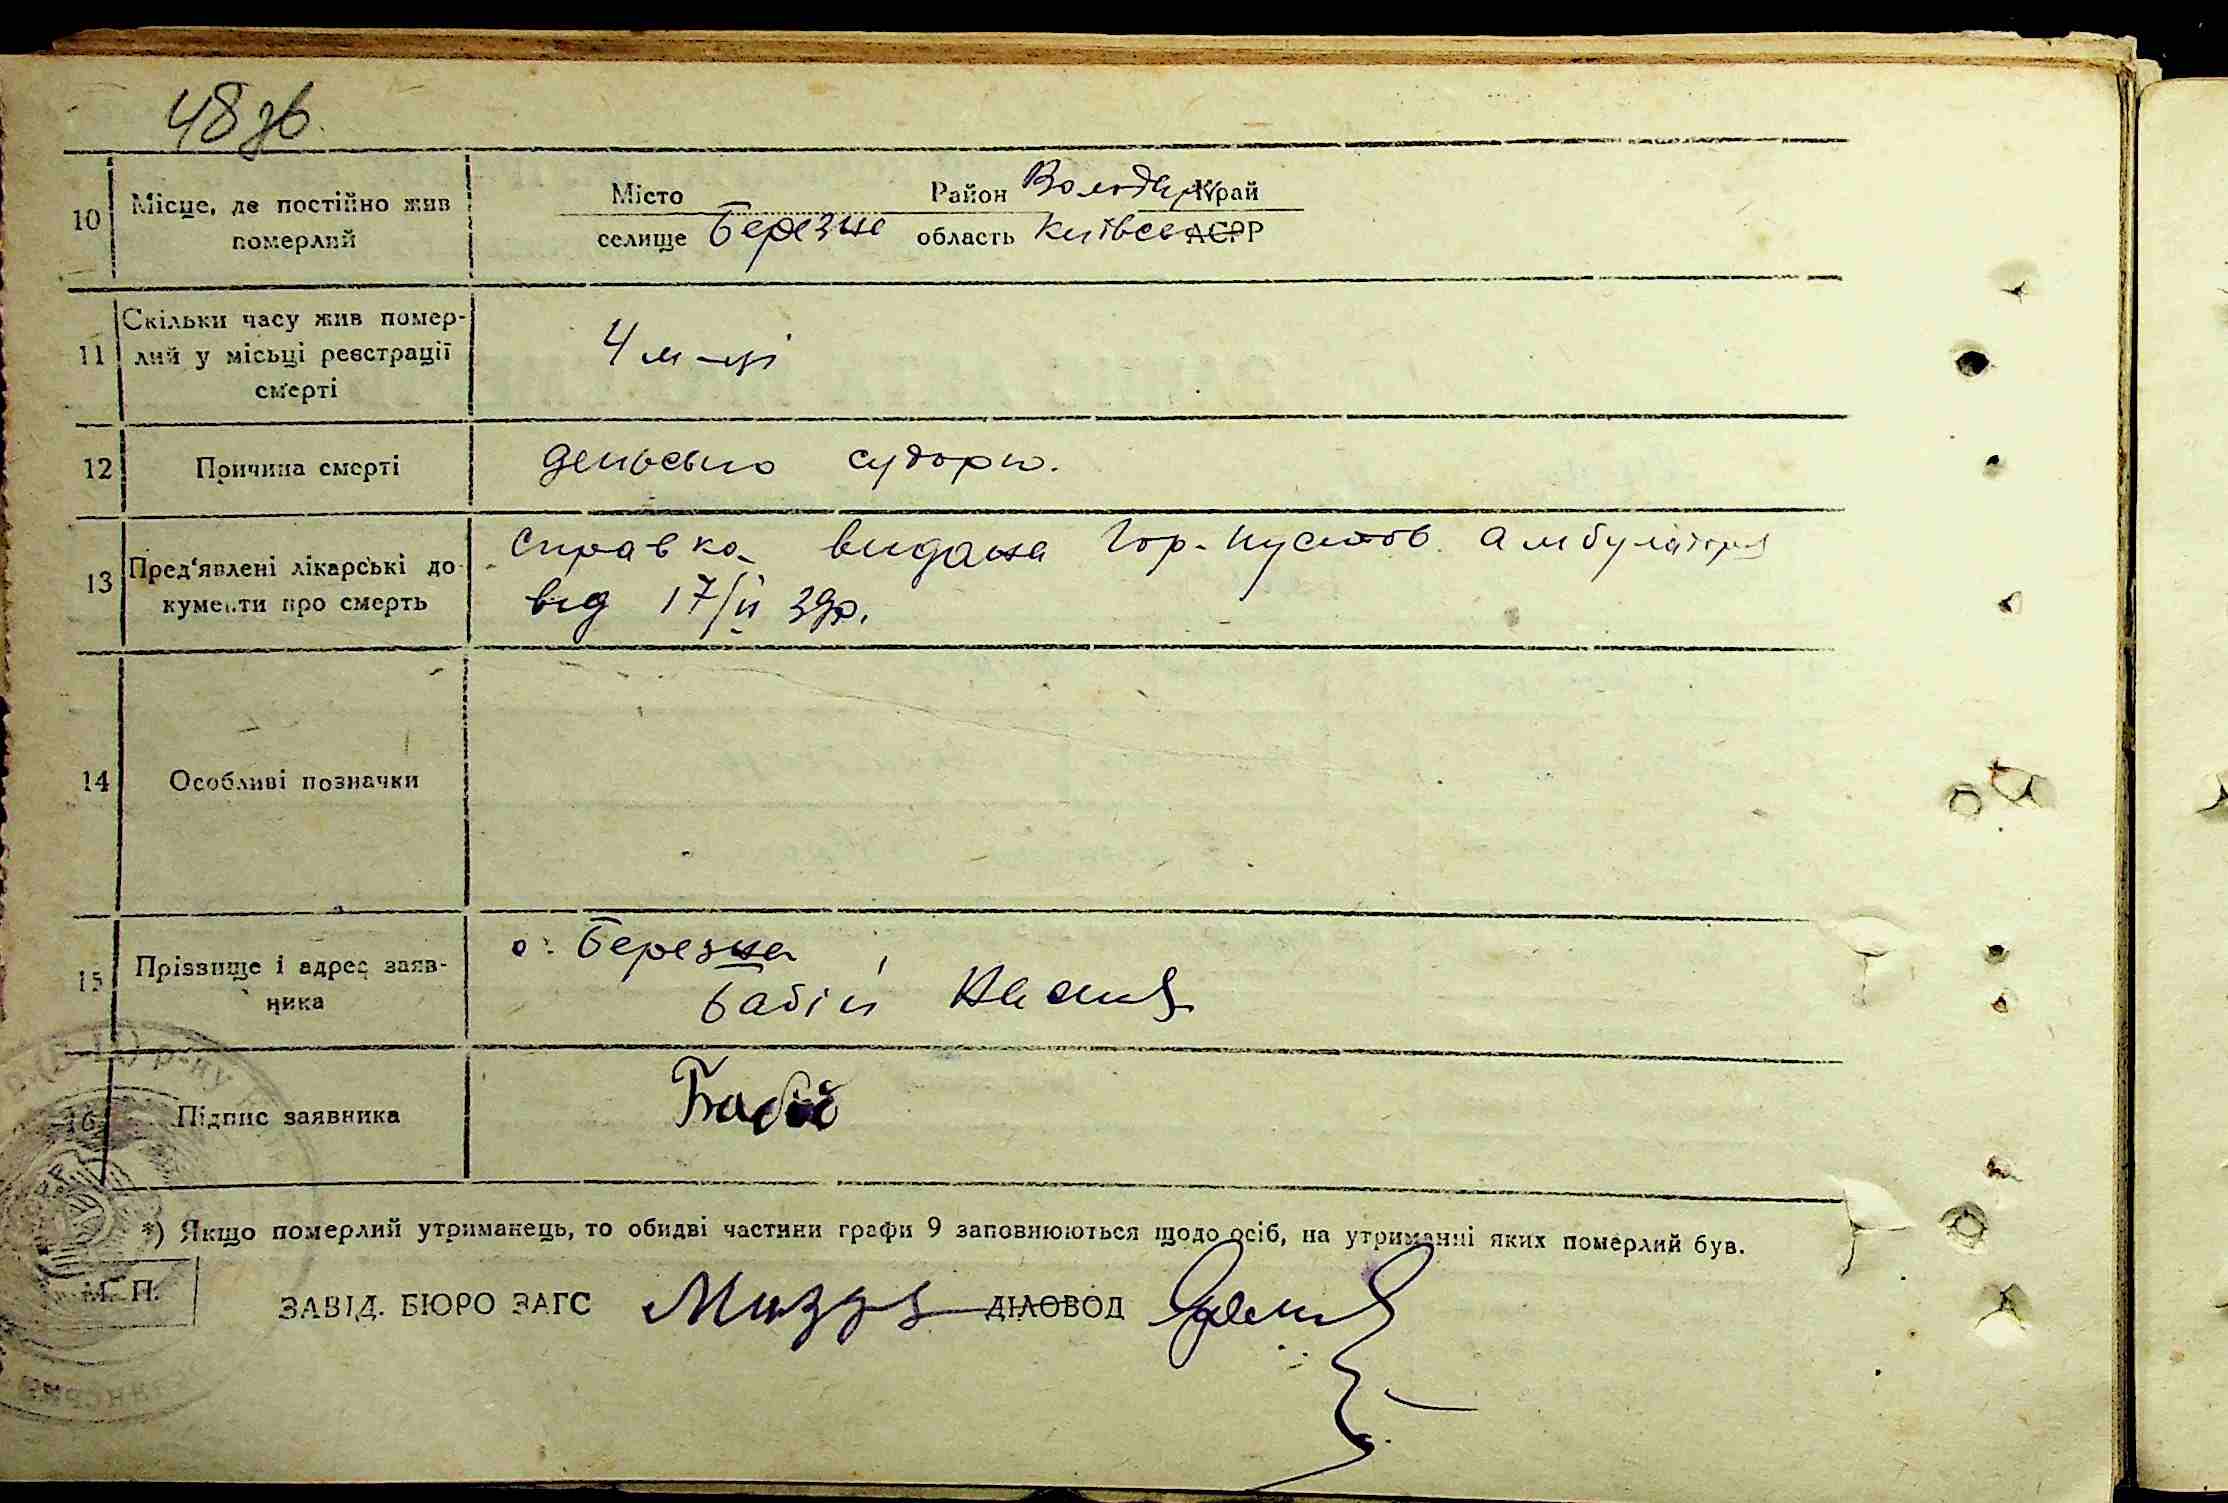 48 зв.
10 Місце, де постійно жив померлий
Місто Район Володар Край
селище Березне область Київсь АСРР
11 Скільки часу жив помер-
лий у місьці реєстрації
смерті
4 м-ці
12 Причина смерті
судорги.
13 Пред'явлені лікарські до-
кументи про смерть
справка видана Гор-Пустов. амбулаторія
від 17/II 39р.
14 Особливі позначки
15 Прізвище і адрес заяв-
ника
с. Березна
Бабій
16 Підпис заявника
Бабій
*) Якщо померлий утриманець, то обидві частини графи 9 заповнюються щодо осіб, на утриманні яких померлий був.
М. П.
ЗАВІД. БЮРО ЗАГС ДІЛОВОД